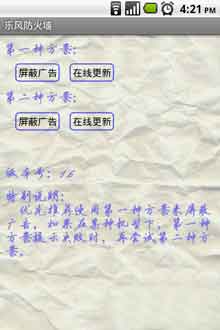 4:21 PM
乐风防火墙
第一种方案:
屏蔽广告 在线更新
第二种方案:
屏蔽广告 在线更新
版本号: 16
特别说明:
优先推荐使用第一种方案来屏蔽
广告, 如果在某种机型下, 第一
种方案提示失败时, 再尝试第二种方
案。